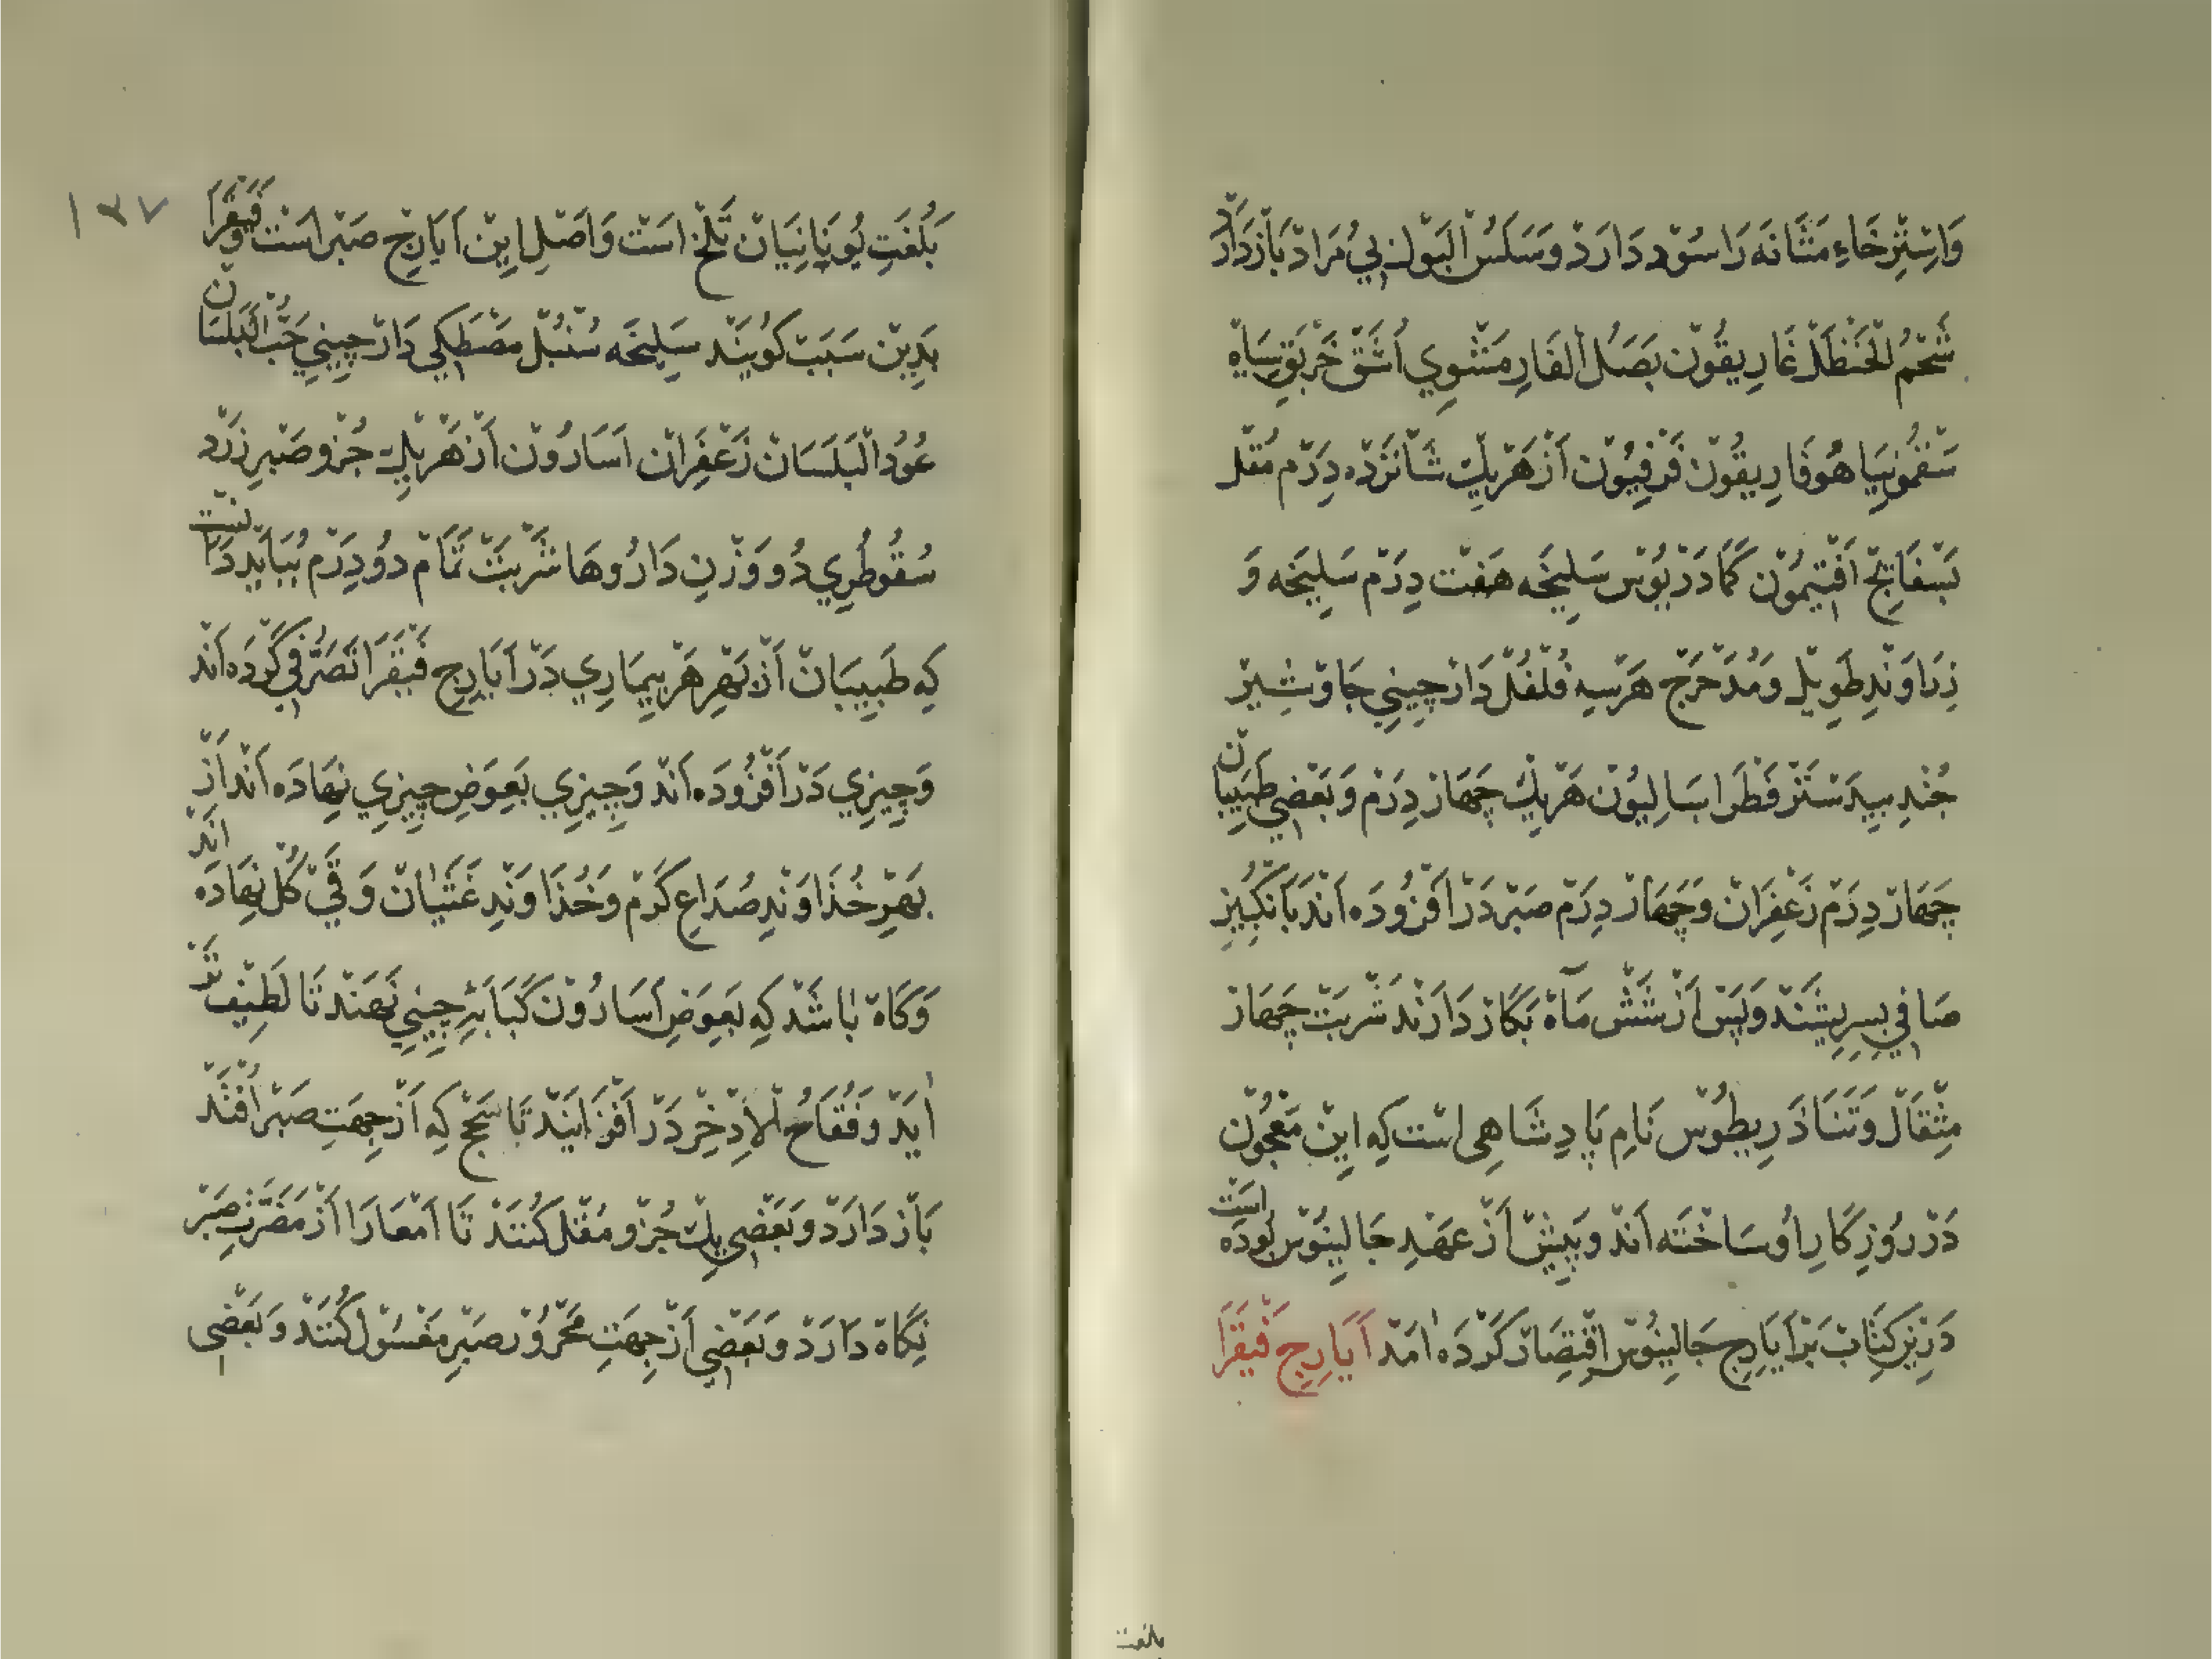 وَاسْتِرْخَاءِ مَثَانَه رَا سُوْد دَارَدْ وَسَلَسُ الْبَوْلِ بِي مُرَادْ بَازْدَارَدْ
شَحْمُ الْحَنْظَلْ غَارِيقُوْن بَصَلُ الْفَارِ مَشْوِي اُشَّقْ خَرْبَقِ سِيَاه
سَقْمُونِيَا هُوفَارِيقُوْن فَرْفِيُوْن اَزْ هَرْيِكْ شَانَزْدَه دِرَمْ مُقْل
بَسْفَايِجْ اَفْتِيمُوْن كَمَادَرْيُوْس سَلِيخَه هَفْت دِرَمْ سَلِيخَه وَ
زَرَاوَنْدِ طَوِيلْ وَمُدَحْرَجْ هَرْسِه فُلْفُلْ دَارْچِينِي جَاوْشِيْر
جُنْدِ بِيدَسْتَرْ فَطْرَاسَالِيُوْن هَرْيِكْ چَهَارْ دِرَمْ وَبَعْضِي طَبِيبَانْ
چَهَارْ دِرَمْ زَعْفَرَانْ وَچَهَارْ دِرَمْ صَبْر دَرْ اَفْزُودَه اَنْد بَانْگُبِيْنِ
صَافِي بِسِرِيشَنْد وَپَسْ اَزْ شَشْ مَاهْ بَكَارْ دَارَنْد شَرْبَتْ چَهَارْ
مِثْقَالْ وَتَنَاذَرِيطُوْس نَامِ پَادِشَاهِى اسْت كِه اِيْن مَعْجُوْن
دَرْ رُوْزِگَارِ اُو سَاخْتَه اَنْد وَپِيْش اَزْ عَهْدِ جَالِينُوْس بُوْدَه اسْت
دَرِيْن كِتَابْ بَرْ اَيَارِجِ جَالِينُوْس اِقْتِصَارْ كَرْدَه اٰمَدْ اَيَارِجِ فَيْقَرَا
۱۳۷
بَلُغَتِ يُونَانِيَانْ تَلْخ اسْت وَاَصْلِ اِيْن اَيَارِجْ صَبْر اسْت وَفَيْقَرَا
بَدِيْن سَبَبْ گُويَنْد سَلِيخَه سُنْبُلْ مَصْطَكِي دَارْچِينِي حَبُّ الْبَلَسَانْ
عُوْدُ الْبَلَسَانْ زَعْفَرَانْ اَسَارُوْن اَزْ هَرْيِكْ جُزْو صَبْرِ زَرْد
سُقُوطْرِي دُو وَزْنِ دَارُوهَا شَرْبَتْ تَمَامْ دُو دِرَمْ بِبَايَد دَانِسْت
كِه طَبِيبَانْ اَزْ بَهْرِ هَرْ بِيمَارِي دَرْ اَيَارِجِ فَيْقَرَا تَصَرُّفِي كَرْدَه اَنْد
وَچِيزِي دَرْ اَفْزُودَه اَنْد وَچِيزِي بَعِوَضِ چِيزِي نِهَادَه اَنْد اَزْ
بَهْرِ خُذَاوَنْدِ صُدَاعِ گَرْم وَخُذَاوَنْدِ غَثَيَانْ وَقَيْ گُل نِهَادَه اَنْد
وَگَاهْ بَاشَدْ كِه بَعِوَضِ اَسَارُوْن كَبَابَهٔ چِينِي نِهَنْد تَا لَطِيْف تَرْ
اٰيَدْ وَفُقَاحُ الْاِذْخِرْ دَرْ اَفْزَايَنْد تَا سَحْج كِه اَزْ جِهَتِ صَبْر اُفْتَدْ
بَازْ دَارَدْ وَبَعْضِي يِكْ جُزْو مُقْل كُنَنْد تَا اَمْعَا رَا اَزْ مَضَرَّتِ صَبْر
نِگَاهْ دَارَدْ وَبَعْضِي اَزْ جِهَتِ مَحْرُوْر صَبْرِ مَغْسُوْل كُنَنْد وَبَعْضِى
بلغت